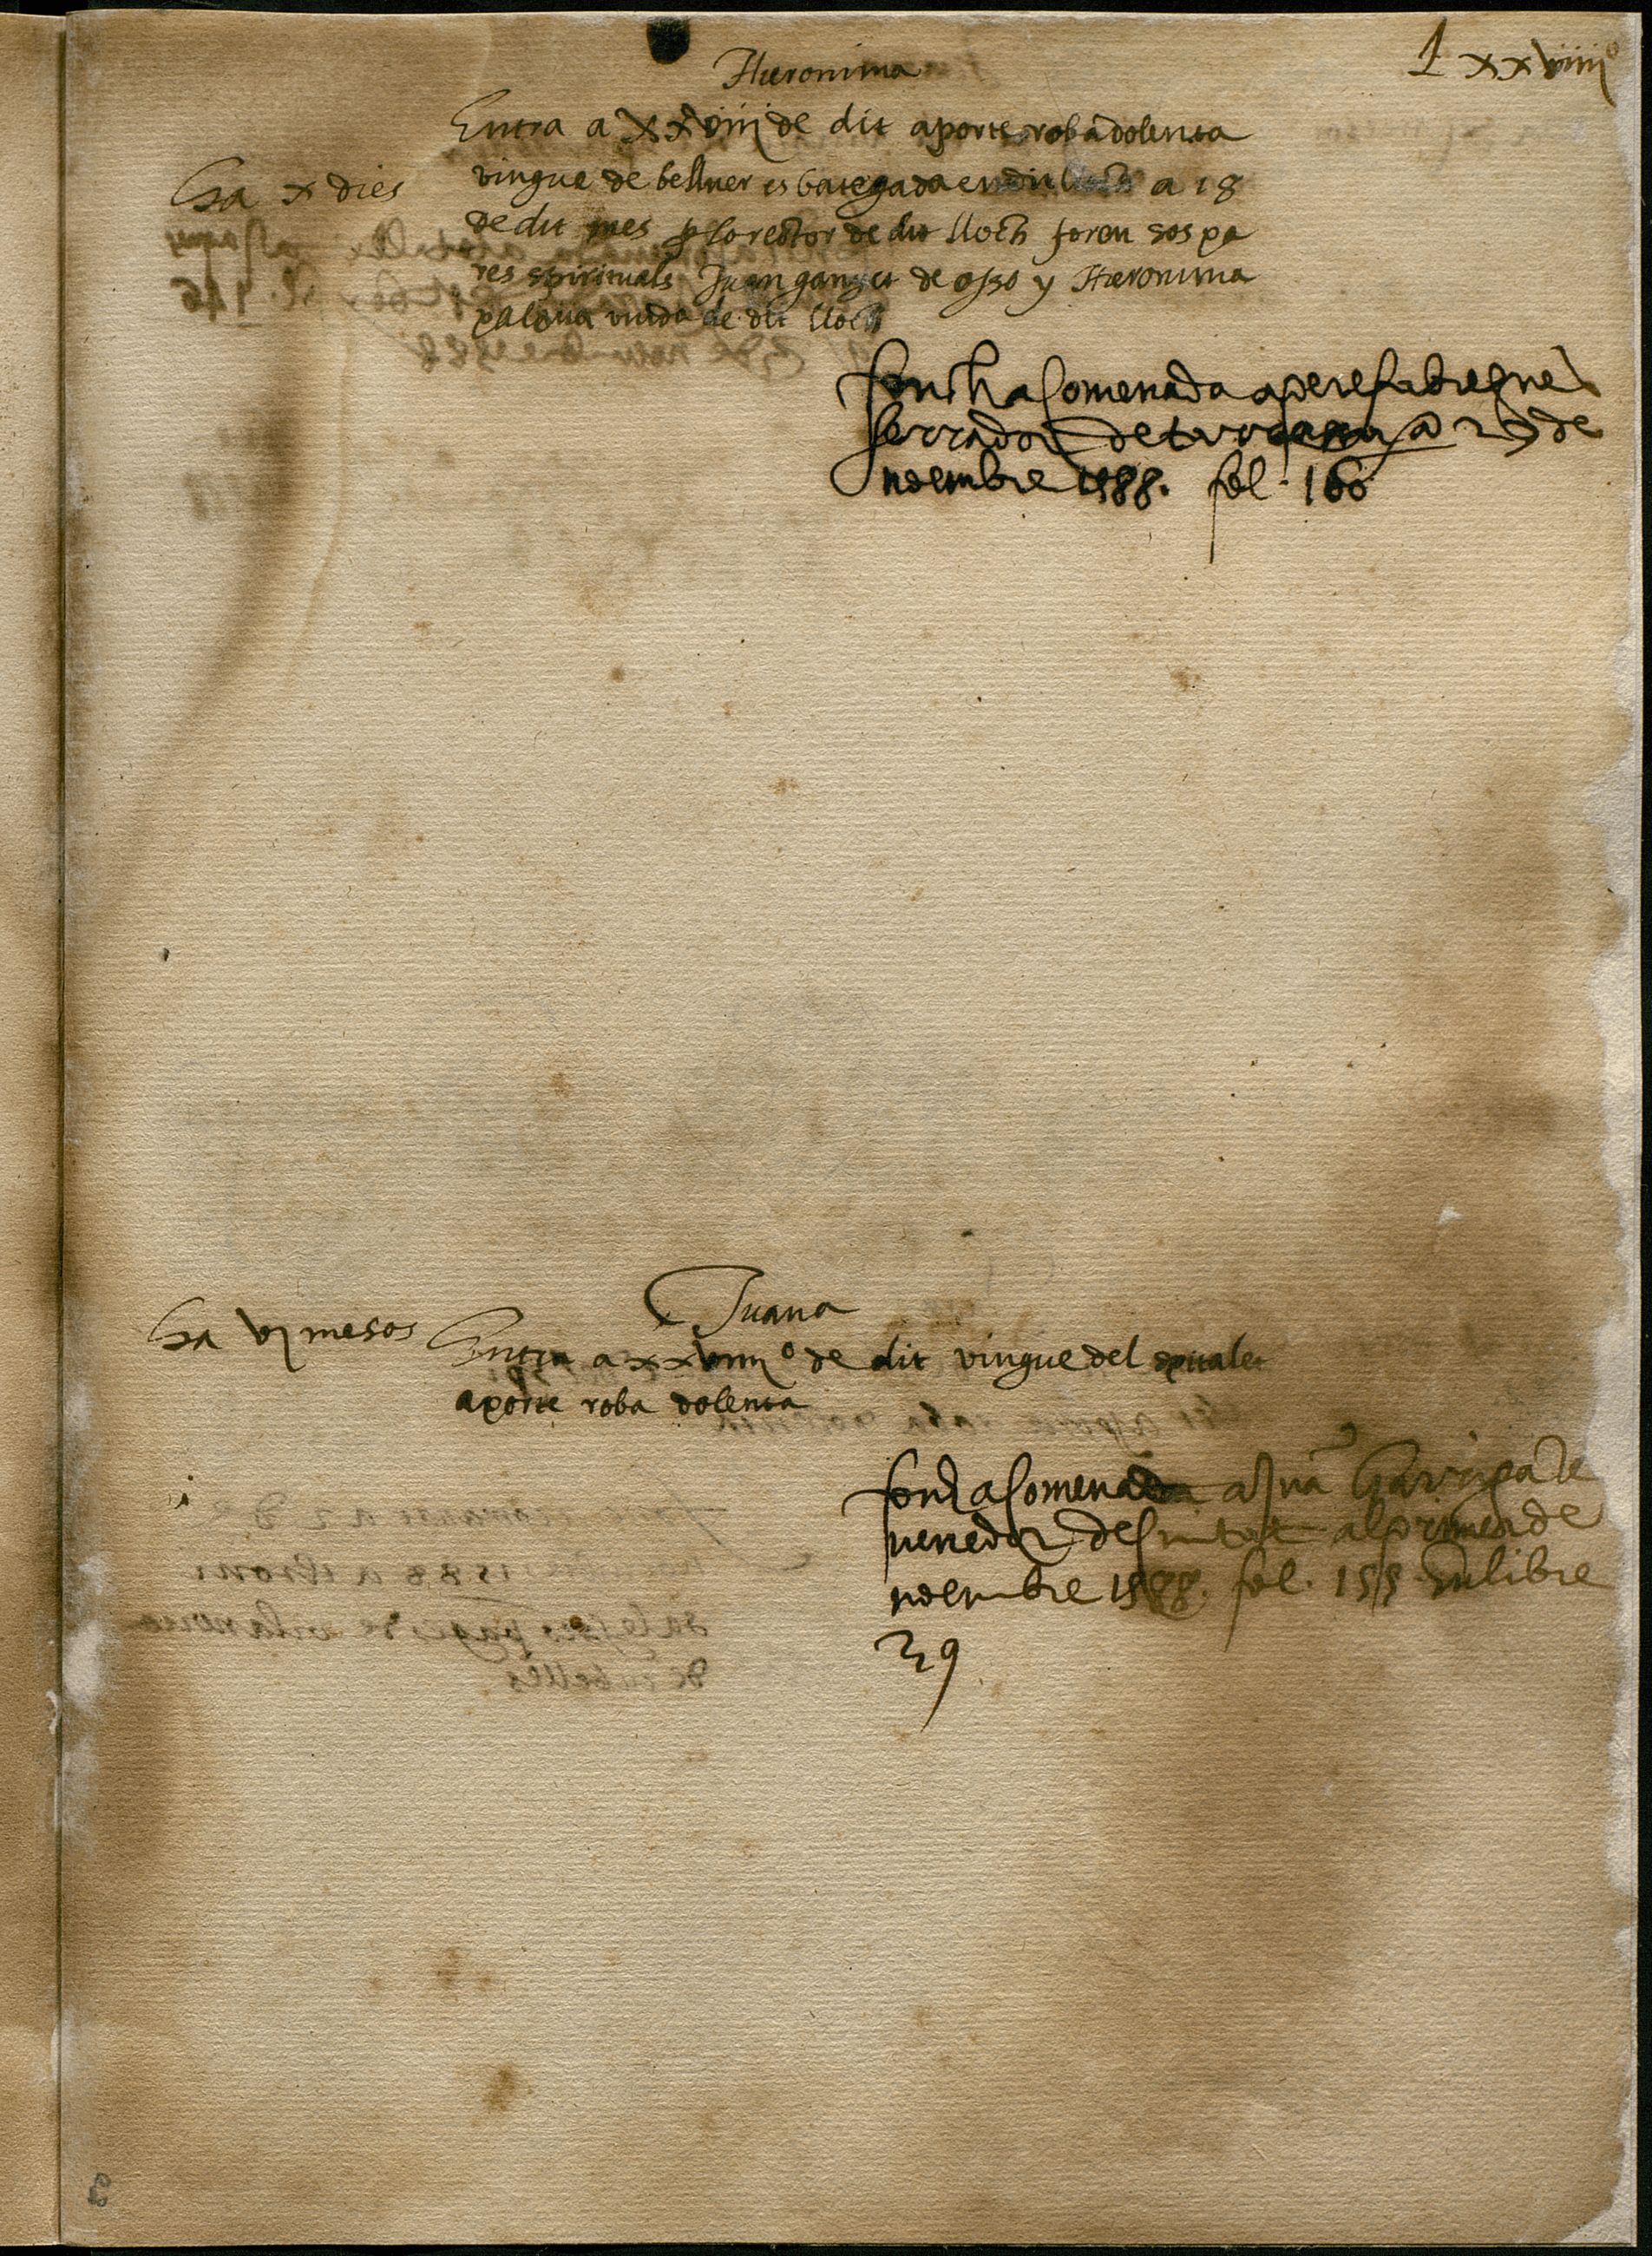 Lxxviiiiº
Hieronima
Entra a xxviiij de dit aporte roba dolenta
ha x dies
vingue de bellver es bategada en dit lloch a 18
de dit mes p lo rector de dit lloch foren sos pa
res spirituals Juan ganset de osso y Hieronima
palaua viuda de dit lloch
fonch acomenada a pere fabregues
serrador de a 27 de
noembre 1588. fol. 160
Juana
ha vj mesos
Entra a xxviiijº de dit vingue del spitalet
aporte roba dolenta
fonch acomenada a Juã
venedor de al primer de
noembre 1588. fol. 155 en libre
29